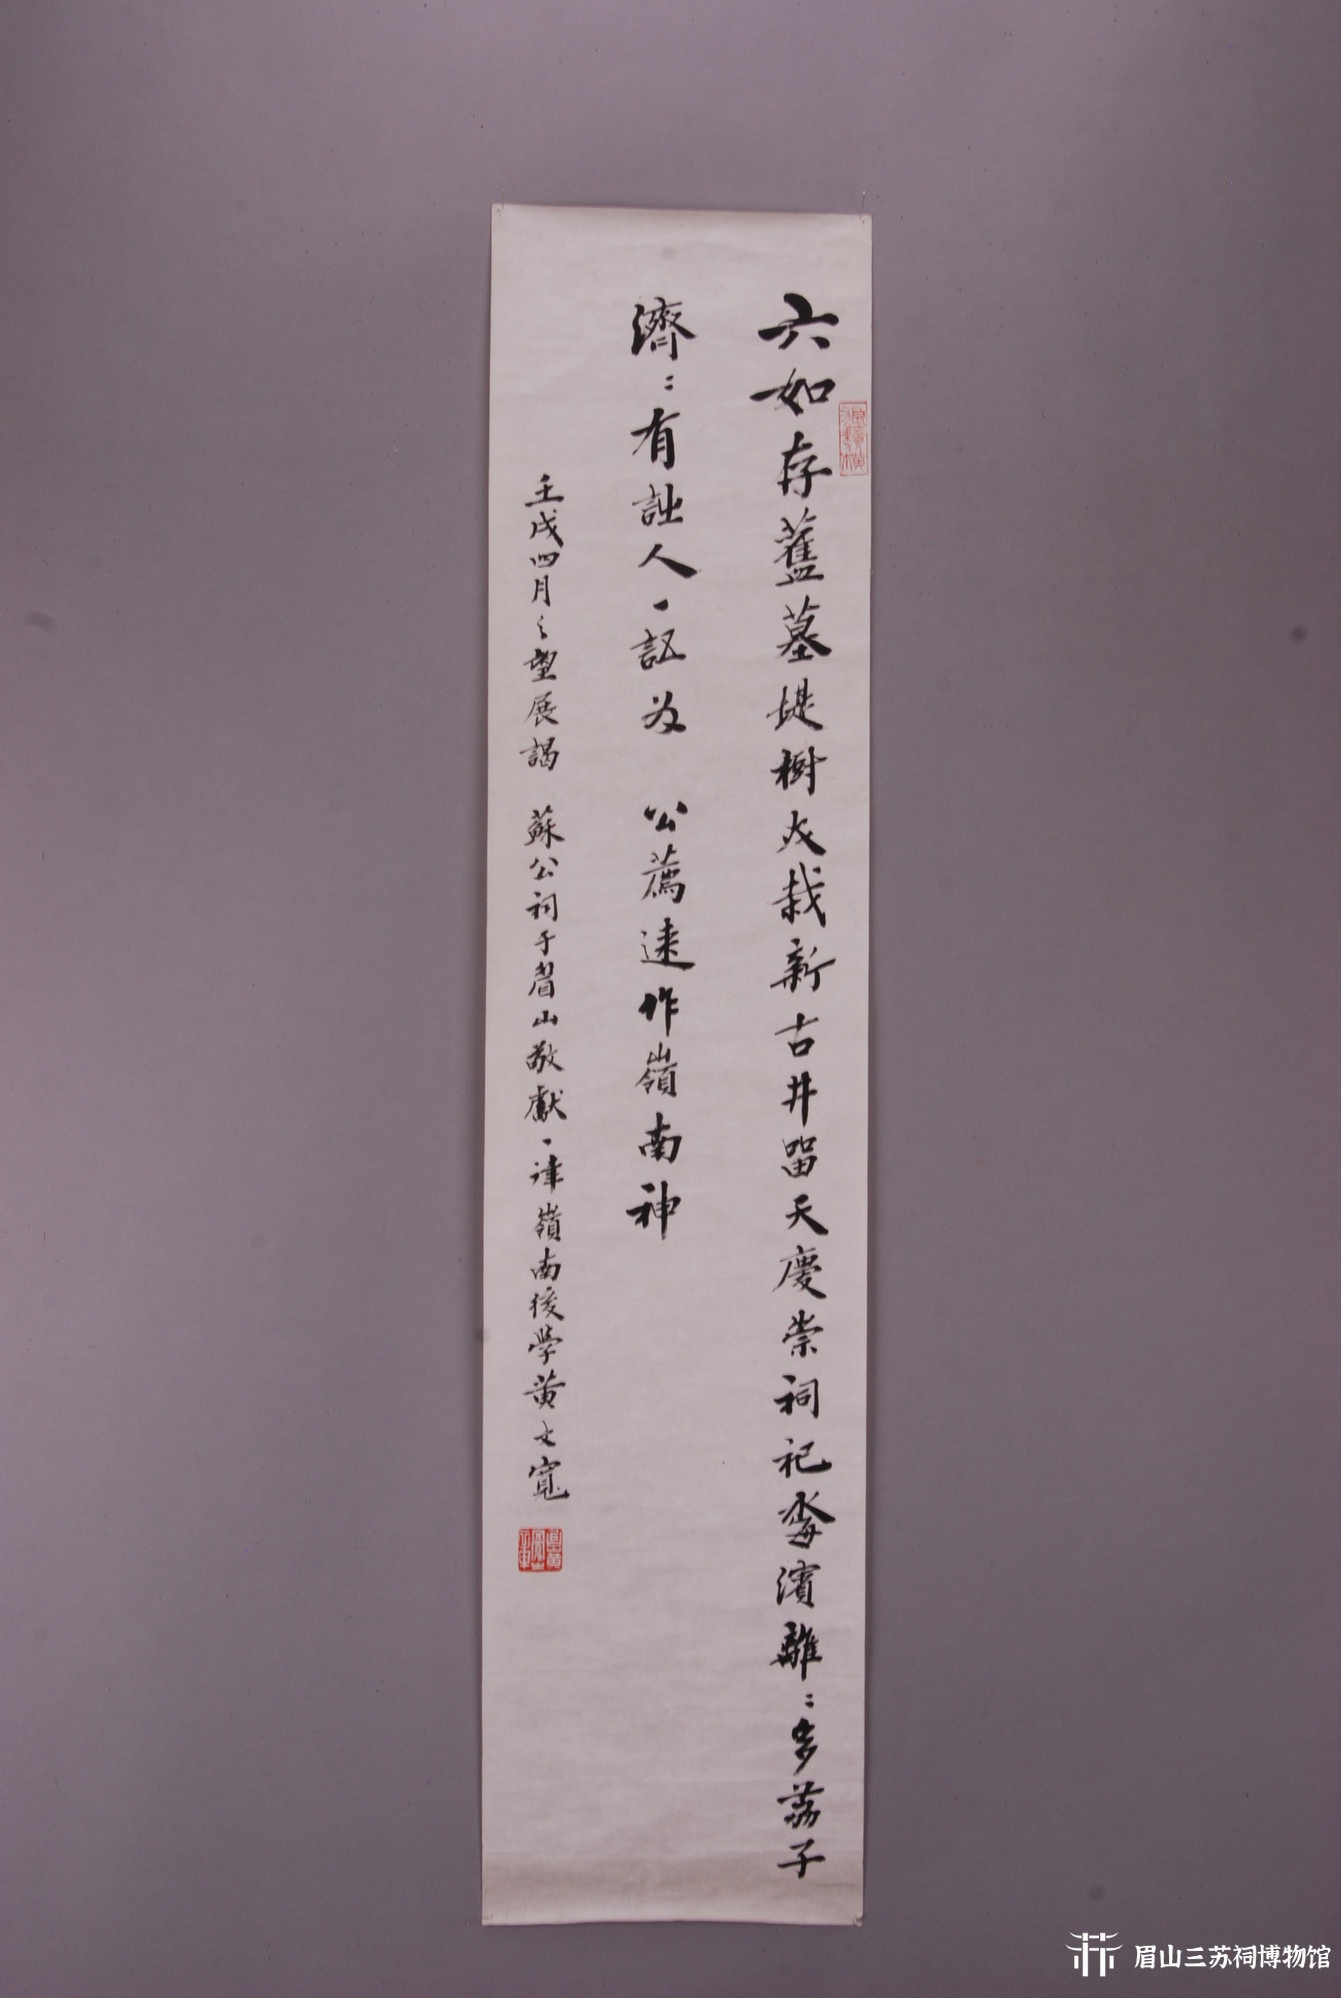 六如存舊墓堤樹又栽新古井留天慶崇祠祀海濱離〻多荔子
濟〻有詘人一詔為 公薦遠作嶺南神
壬戌四月之望展謁 蘇公祠于眉山敬獻一律嶺南後學黃文寬
眉山三苏祠博物馆